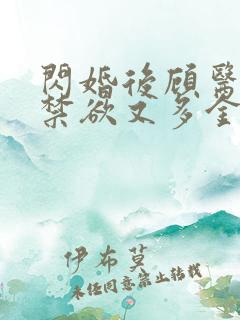 閃婚後顾醫
禁欲又多金
伊布莫
未经同意禁止转载